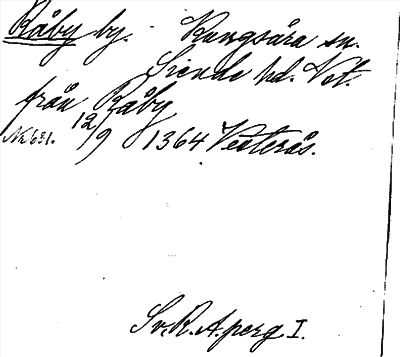 Råby by. Kungsåra sn.
Siende hd. Vst.
från Råby
Nr 631. 12/9 1364 Vesterås.
Sv. R. A. perg I.